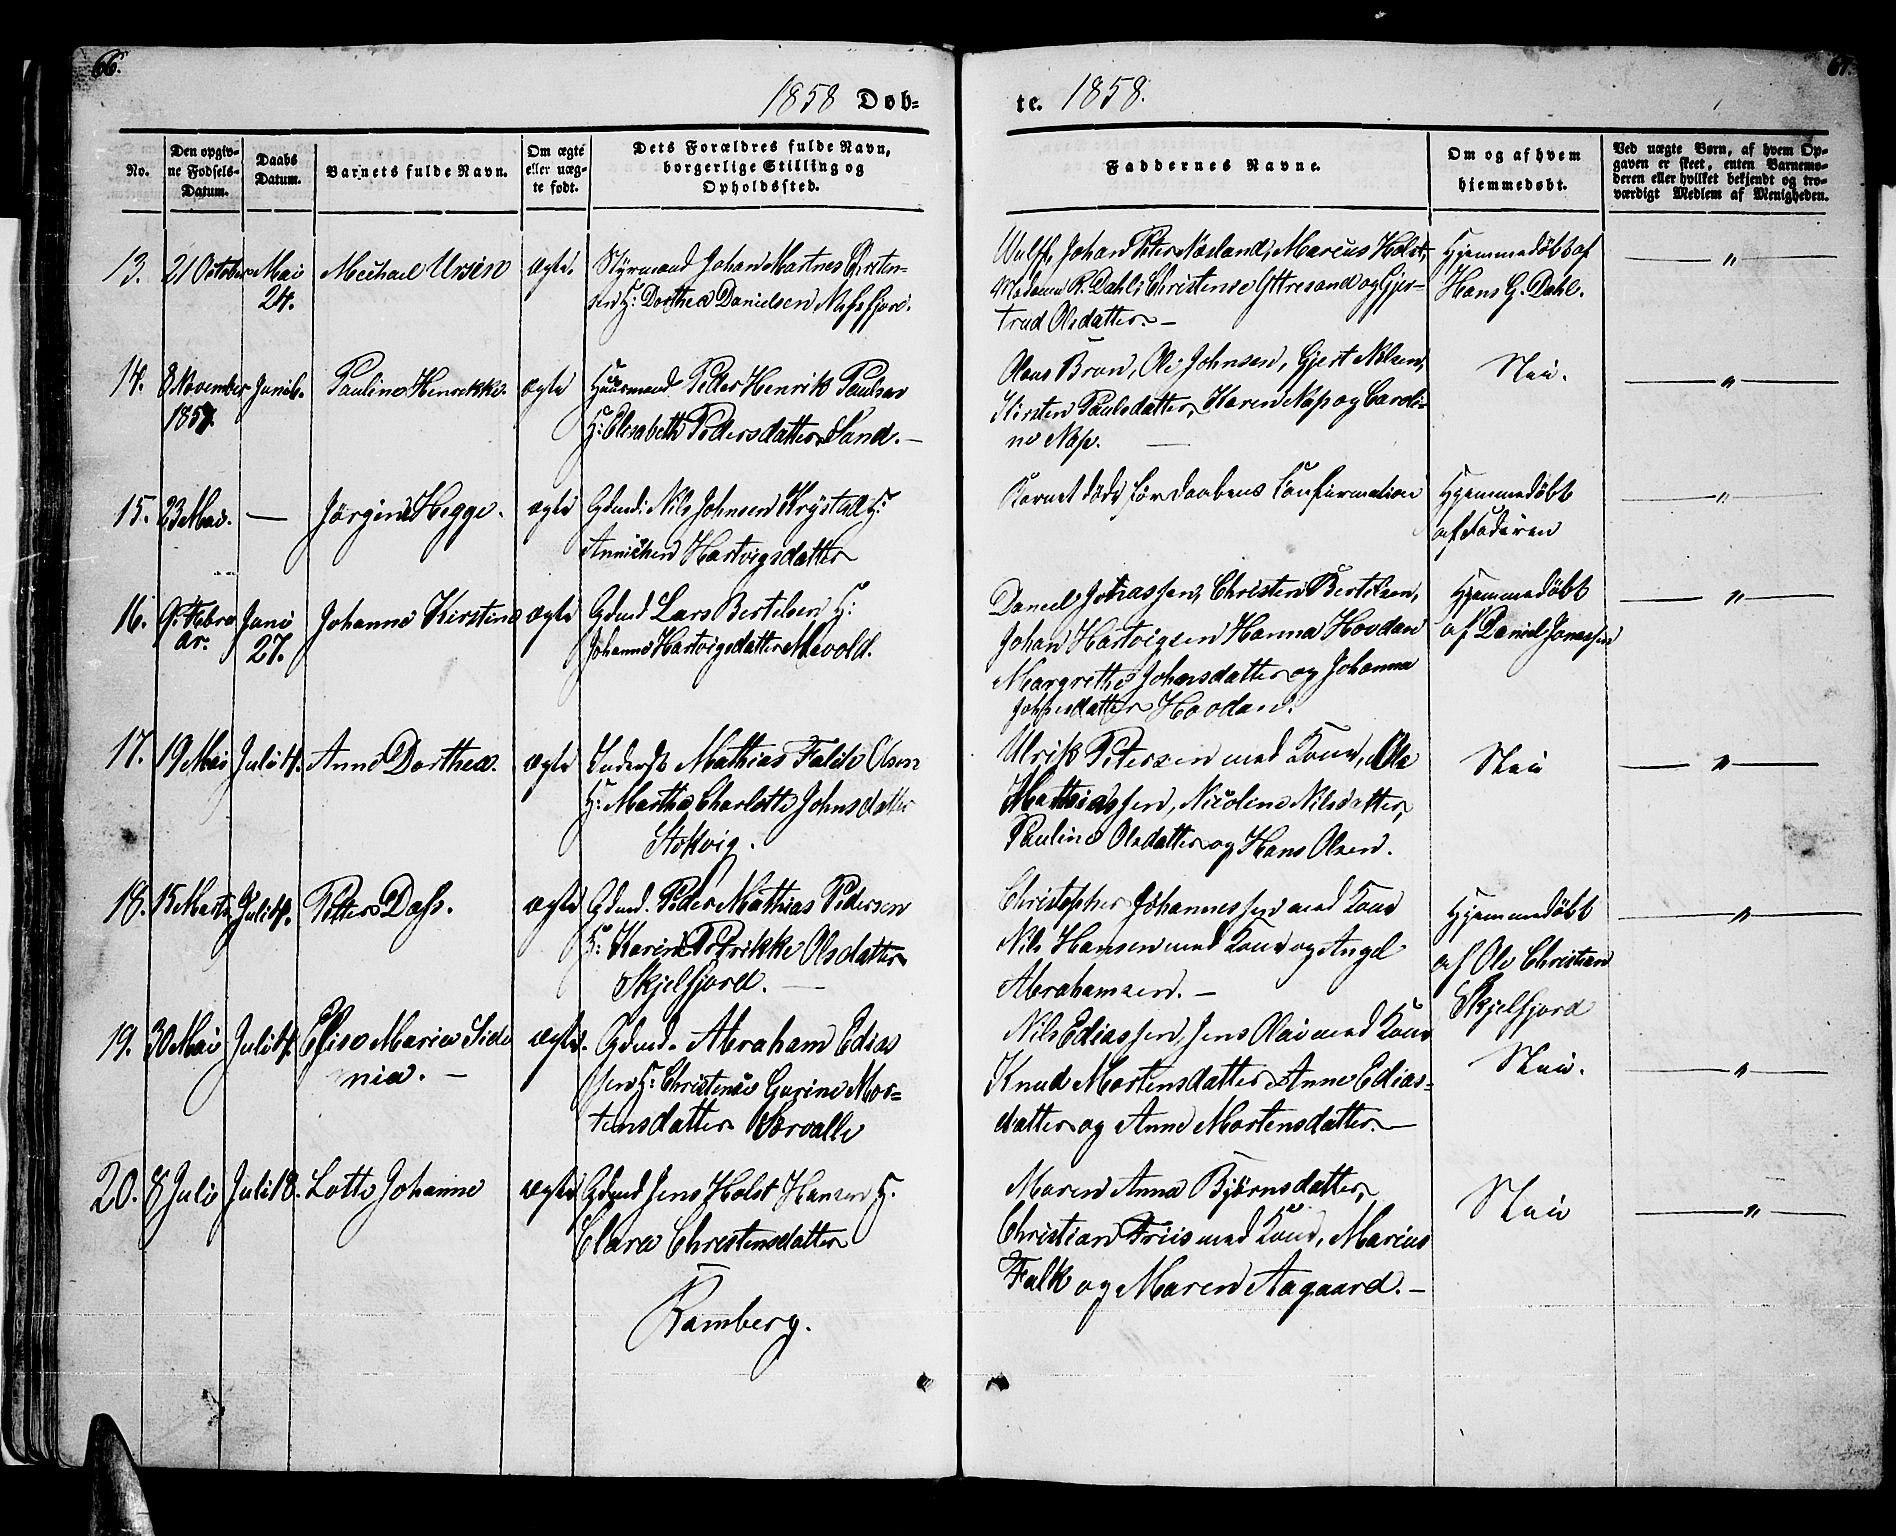 66.
67.
1858 Døb-
te. 1858.
No.
Den opgiv-
ne Fødsels-
Datum.
Daabs
Datum.
Barnets fulde Navn.
Om ægte
eller uæg-
te født.
Dets Forældres fulde Navn,
borgerlige Stilling og
Opholdssted.
Faddernes Navne.
Om og af hvem
hjemmedøbt.
Ved uægte Børn, af hvem Op-
gaven er skeet, enten Barnemo-
deren eller hvilket bekjendt og tro-
værdigt Medlem af Menigheden.
13. 21 October Mai Michael Ursin ægte. Styrmand Johan Martnes Christen-
24.
sen H: Dorthea Danielsen Nufsfjord.
Johan Peter Næsland, Marcus Holst,
Madame R. Dahl, Christense Yttresand og Gjer-
trud Olsdatter. —
Hjemmedöbt af
Hans G. Dahl.
— " —
14. 8 November Juni 6. Pauline Henrikke. ægte Huusmand Peder Henrik Paulsen
1857.
H: Elisabeth Pedersdatter Sand. —
Olaus Brun, Ole Johnsen, Gjert Nilsen,
Kirsten Paulsdatter, Karen Nap og Caroli-
ne Nap. —
Nei.
— " —
15. 23 Mai. — Jörgine Hegge. ægte Gdmd: Nils Johnsen Krystad H:
Annichen Hartvigsdatter
Barnet döde för Daabens Confirmation
Hjemmedöbt
af Faderen
— " —
16. 9. Febru Juni Johanne Kirstine ægte Gdmd Lars Bertelsen H:
ar. 27.
Johanne Hartvigsdatter Mevold.
Daniel Jonassen, Christen Bertelsen,
Johan Hartvigsen Hanna Hovdan
Margrethe Johnsdatter og Johanna
Johnsdatter Hovdan.
Hjemmedöbt
af Daniel Jonassen
— " —
17. 19 Mai Juli 4. Anne Dorthea. ægte Inderst Mathias Falch Olsen
H: Martha Charlotte Johnsdatter
Stokvig.
Ulrik Petersen med Kone, Ole
Mathiassen, Nicoline Nilsdatter,
Pauline Olsdatter og Hans Olsen.
Nei
— " —
18. 15 Marts Juli 4. Petter Dass. ægte Gdmd. Peder Mathias Pedersen
H: Karen Petrikke Olsdatter
Skjelfjord. —
Christopher Johannessen med Kone
Nils Hansen med Kone og Angel
Abrahamsen. —
Hjemmedöbt
af Ole Christian
Skjelfjord
— " —
19. 30 Mai Juli 4. Elise Maria Sido ægte. Gdmd. Abraham Edias
nia. —
sen H: Christense Gurine Mor-
tensdatter Vorvalle
Nils Ediassen, Jens Olai med Kone
Knud Mortensdatter, Anne Edias-
datter og Anne Mortensdatter. —
Nei.
— " —
20. 8 Juli Juli 18. Lotte Johanne ægte Gdmd Jens Holst Hansen H.
Clara Christensdatter
Ramberg.
Maren Anna Björnsdatter,
Christian Friis med Kone, Marius
Falk og Maren Aagaard. —
Nei
— " —